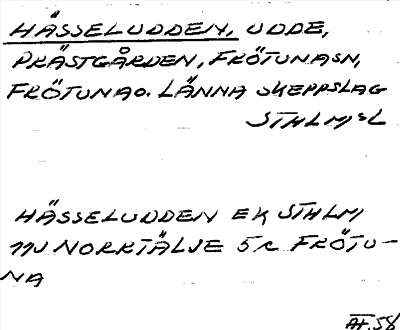 HÄSSELUDDEN, UDDE,
PRÄSTGÅRDEN, FRÖTUNASN,
FRÖTUNA O. LÄNNA SKEPPSLAG
STHLMSL
HÄSSELUDDEN EK STHLM
11U NORRTÄLJE 5R FRÖTU-
NA
AF. 58